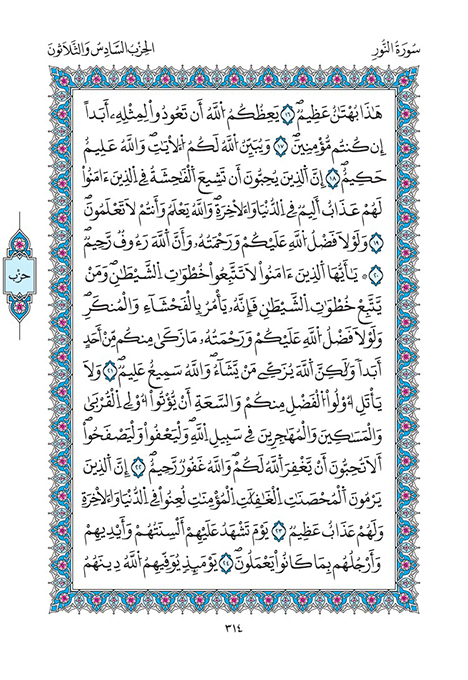 سُورَةُ النُّورِ
الحِزْبُ السَّادِسُ وَالثَّلَاثُونَ
هَٰذَا بُهْتَٰنٌ عَظِيمٌ ١٦ يَعِظُكُمُ اللَّهُ أَن تَعُودُواْ لِمِثْلِهِۦ أَبَداً
إِن كُنتُم مُّؤْمِنِينَ ١٧ وَيُبَيِّنُ اللَّهُ لَكُمُ الْأٓيَٰتِ وَاللَّهُ عَلِيمٌ
حَكِيمٌ ١٨ إِنَّ الَّذِينَ يُحِبُّونَ أَن تَشِيعَ الْفَٰحِشَةُ فِي الَّذِينَ ءَامَنُواْ
لَهُمْ عَذَابٌ أَلِيمٌ فِي الدُّنْيَا وَالْأَخِرَةِ وَاللَّهُ يَعْلَمُ وَأَنتُمْ لَا تَعْلَمُونَ
١٩ وَلَوْلَا فَضْلُ اللَّهِ عَلَيْكُمْ وَرَحْمَتُهُۥ وَأَنَّ اللَّهَ رَءُوفٌ رَّحِيمٌ
٢٠ يَٰأَيُّهَا الَّذِينَ ءَامَنُواْ لَا تَتَّبِعُواْ خُطْوَٰتِ الشَّيْطَٰنِ وَمَنْ
يَتَّبِعْ خُطْوَٰتِ الشَّيْطَٰنِ فَإِنَّهُۥ يَأْمُرُ بِالْفَحْشَاءِ وَالْمُنكَرِ
وَلَوْلَا فَضْلُ اللَّهِ عَلَيْكُمْ وَرَحْمَتُهُۥ مَا زَكَىٰ مِنكُم مِّنْ أَحَدٍ
أَبَداً وَلَٰكِنَّ اللَّهَ يُزَكِّي مَنْ يَّشَاءُ وَاللَّهُ سَمِيعٌ عَلِيمٌ ٢١ وَلَا
يَأْتَلِ أُوْلُواْ الْفَضْلِ مِنكُمْ وَالسَّعَةِ أَنْ يُّؤْتُواْ أُوْلِي الْقُرْبَىٰ
وَالْمَسَٰكِينَ وَالْمُهَٰجِرِينَ فِي سَبِيلِ اللَّهِ وَلْيَعْفُواْ وَلْيَصْفَحُواْ
أَلَا تُحِبُّونَ أَنْ يَّغْفِرَ اللَّهُ لَكُمْ وَاللَّهُ غَفُورٌ رَّحِيمٌ ٢٢ إِنَّ الَّذِينَ
يَرْمُونَ الْمُحْصَنَٰتِ الْغَٰفِلَٰتِ الْمُؤْمِنَٰتِ لُعِنُواْ فِي الدُّنْيَا وَالْأَخِرَةِ
وَلَهُمْ عَذَابٌ عَظِيمٌ ٢٣ يَوْمَ تَشْهَدُ عَلَيْهِمْ أَلْسِنَتُهُمْ وَأَيْدِيهِمْ
وَأَرْجُلُهُم بِمَا كَانُواْ يَعْمَلُونَ ٢٤ يَوْمَئِذٍ يُوَفِّيهِمُ اللَّهُ دِينَهُمُ
حزب
٣١٤